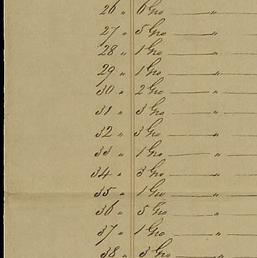 26 " 6 Gro — "
27 " 5 Gro — "
28 " 1 Gro — "
29 " 1 Gro — "
30 " 2 Gro — "
31 " 3 Gro — "
32 " 3 Gro — "
33 " 1 Gro — "
34 " 3 Gro — "
35 " 1 Gro — "
36 " 5 Gro — "
37 " 1 Gro — "
38 " 3 Gro — "